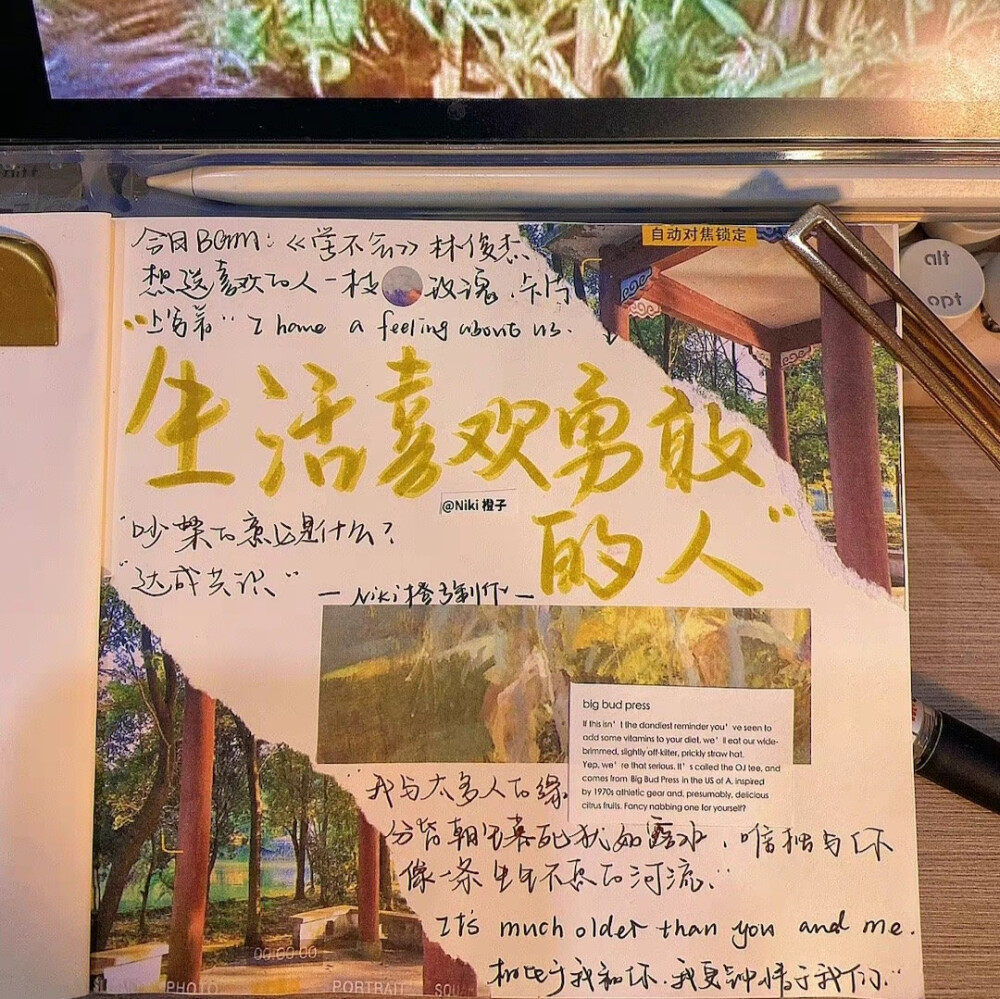 自动对焦锁定
今日BGM:《学不会》林俊杰
想送喜欢的人一枝 玫瑰,卡片
"上写着" I have a feeling about us.
"生活喜欢勇敢
的人"
@Niki 橙子
"吵架的意义是什么?
"达成共识"
— Niki橙子制作 —
big bud press
If this isn't the dandiest reminder you've seen to
add some vitamins to your diet, we'll eat our wide-
brimmed, slightly off-kilter, prickly straw hat.
Yep, we're that serious. It's called the OJ tee, and
comes from Big Bud Press in the US of A, inspired
by 1970s athletic gear and, presumably, delicious
citrus fruits. Fancy nabbing one for yourself?
"我与太多人的缘
分皆朝生暮死犹如露水,唯独与你
像一条生生不息的河流."
It's much older than you and me.
相比于我和你.我更钟情于我们."
00:00:00
PHOTO
PORTRAIT
SQUA
alt